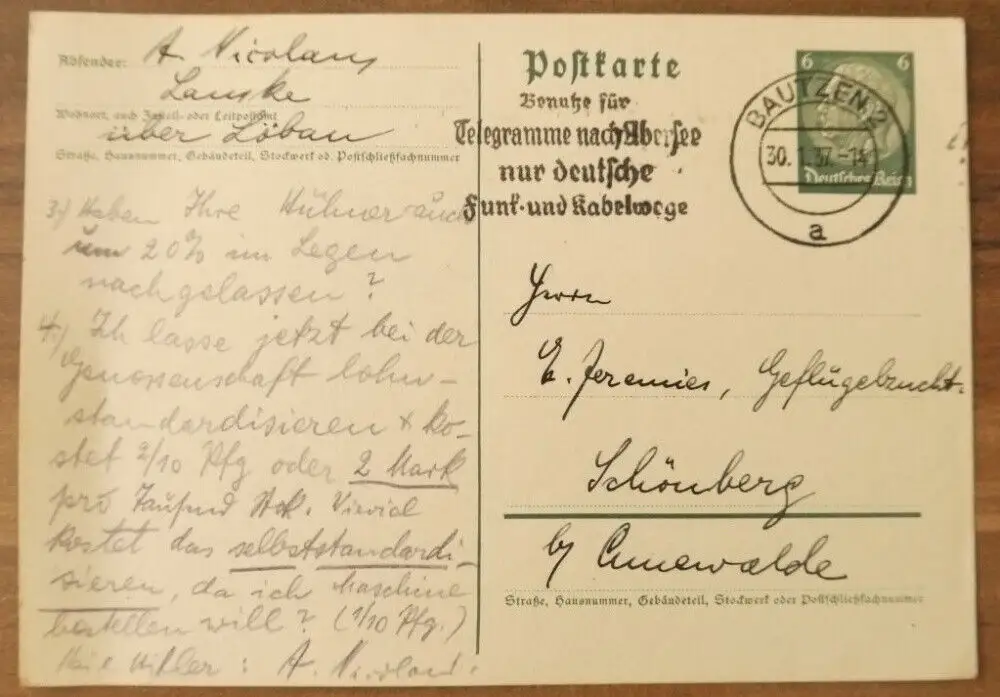 Absender: A. Nicolaus
Lauske
Wohnort, auch Zustell- oder Leitpostamt
über Löbau
Straße, Hausnummer, Gebäudeteil, Stockwerk od. Postschließfachnummer
3.) Haben Ihre Hühner auch
um 20% im Legen
nachgelassen?
4.) Ich lasse jetzt bei der
Genossenschaft lohn-
standardisieren + ko-
stet 2/10 Pfg oder 2 Mark
pro Tausend Stck. Wieviel
kostet das selbststandardi-
sieren, da ich Maschine
bestellen will? (1/10 Pfg.)
Hitler: A. Nicolaus.
Postkarte
Benutze für
Telegramme nach Übersee
nur deutsche
Funk- und Kabelwege
6 6
Deutsches Reich
BAUTZEN 2
30.1.37.-14
a
Herrn
E. Jeremies, Geflügelzucht.
Schönberg
by Cunewalde
Straße, Hausnummer, Gebäudeteil, Stockwerk oder Postschließfachnummer